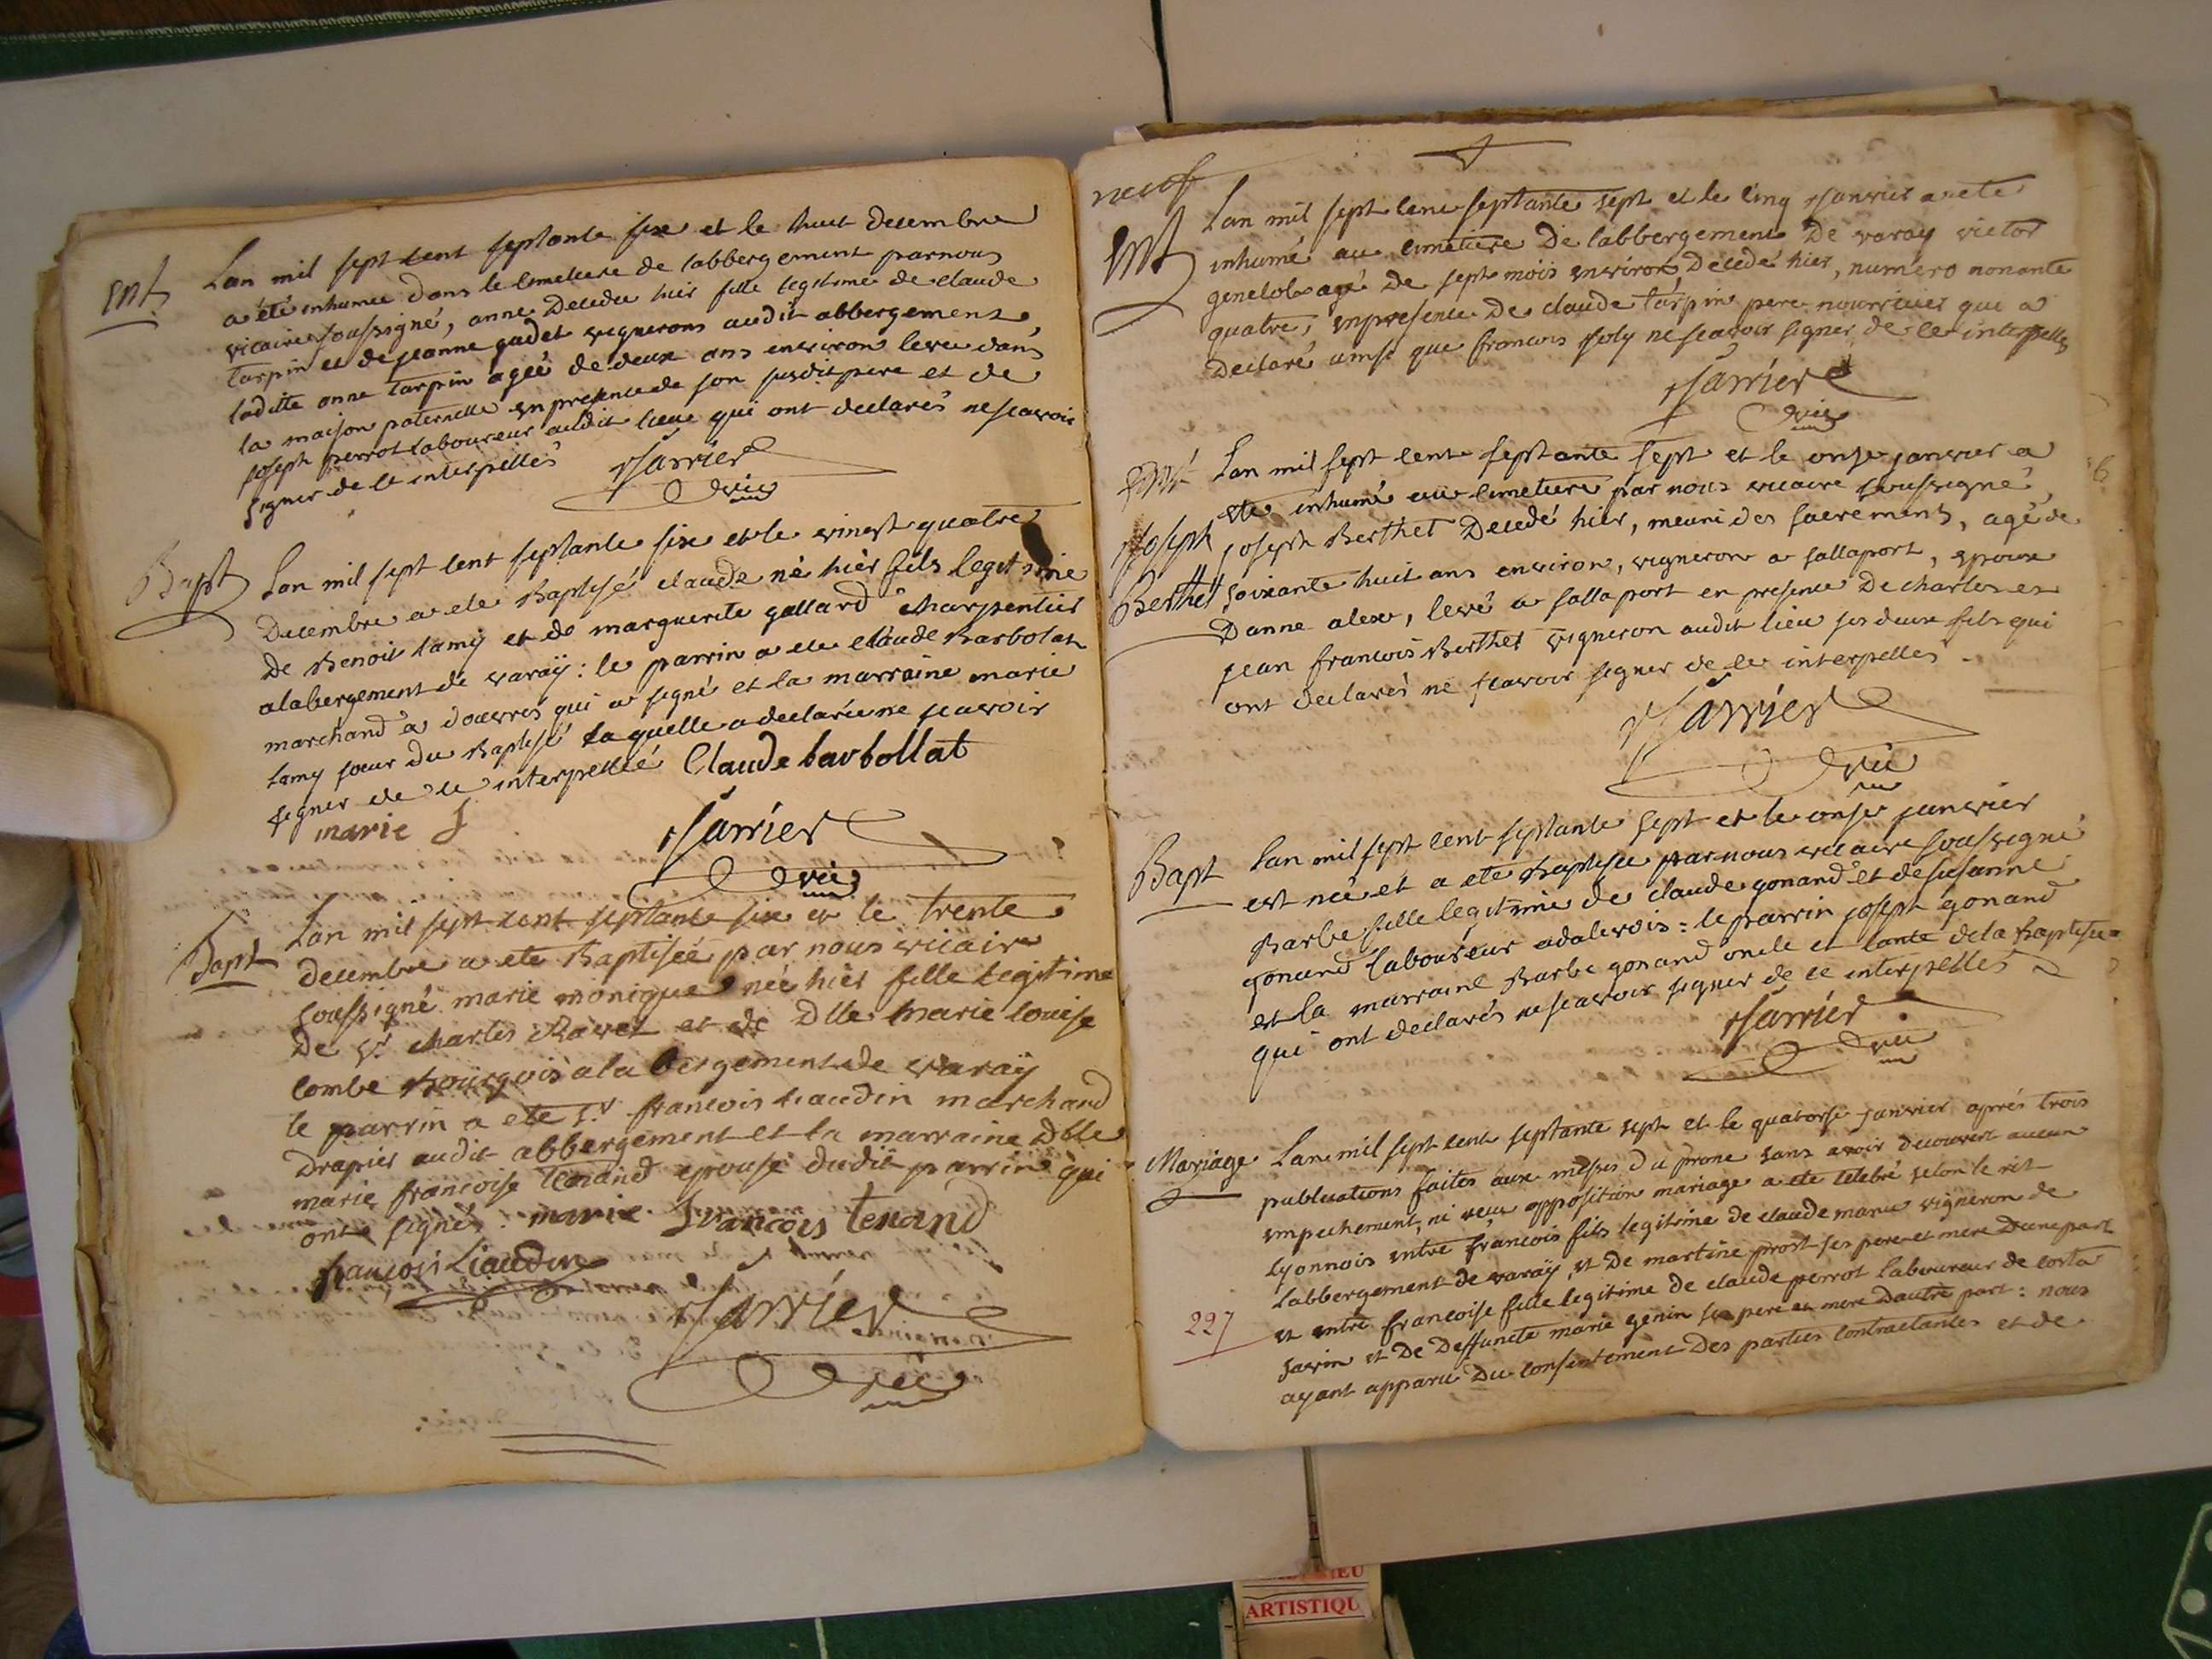 ent
Lan mil sept cent septante six et le huit decembre
a été inhumée dans le cimetiere de labbergement par nous
vicaire soussigné, anne Decedée hier fille legitime de claude
tarpin et de jeanne gadet vignerons audit abbergement,
laditte anne tarpin agée de deux ans environ levée dans
la maison paternelle en presence de son susdit pere et de
joseph perrot laboureur audit lieue qui ont declarés ne scavoir
signer de ce interpellés
Jarrier
vic
Bapt
Lan mil sept cent septante six et le vingt quatre
Decembre a ete Baptisé claude né hier fils legitime
De Benoit lamy et de marguerite gallard charpentier
alabergement de varaÿ : le parrin a ete claude Barbolat
marchand a douvres qui a signé et la marraine marie
lamy soeur du Baptisé laquelle a declarée ne scavoir
signer de ce interpellée Claude barbollat
marie J
Jarrier
vic
Bapt
Lan mil sept cent septante six et le trente
decembre a ete Baptisée par nous vicaire
soussigné marie monique née hier fille legitime
De Sr charles Ravet et de Dlle marie louise
combe Bourgois ala bergement de varaÿ
le parrin a ete Sr francois Liaudin marchand
Drapier audit abbergement et la marraine Dlle
marie francoise tenand epouse dudit parrin qui
ont signés. marie françois tenand
françois Liaudin
Jarrier
vic
neuf
ent
Lan mil sept cent septante sept et le cinq Janvier a ete
inhumé au cimetiere De labbergement De varay victor
agé De sept mois environ Decedé hier, numéro nonante
quatre, en presence De claude tarpin pere nourricier qui a
Declaré ainsi que francois joly ne scavoir signer de ce interpellés
Jarrier
vic
ent
Joseph
Berthet
Lan mil sept cent septante sept et le onze janvier a
ete inhumé au cimetiere par nous vicaire soussigné
joseph Berthet Decedé hier, meuni des sacrements, agé de
soixante huit ans environ, vigneron a sallaport, epoux
Danne alex, levé a sallaport en presence De charles et
jean francois Berthet vigneron audit lieu ses deux fils qui
ont declarés ne scavoir signer de ce interpellés
Jarrier
vic
Bapt
Lan mil sept cent septante sept et le onze janvier
est née et a ete Baptisée par nous vicaire soussigné
Barbe fille legitime de claude gonand et de susanne
gonand laboureur adalivois : le parrin joseph gonand
et la marraine Barbe gonand oncle et tante dela Baptisée
qui ont declarés ne scavoir signer de ce interpellés
Jarrier
vic
Mariage
Lan mil sept cent septante sept et le quatorse janvier aprés trois
publications faites aux messes du prone sans avoir decouvert aucun
empechement, ni reçu opposition mariage a ete celebré selon le rit
Lyonnois entre françois fils legitime de claude vigneron de
Labbergement de varaÿ, et De martine prost ses pere et mere Dune part
et entre francoise fille legitime de claude perrot laboureur de costa
savin et De Deffuncte marie genin ses pere et mere Dautre part : nous
ayant apparu Du consentement Des parties contractantes et de
227
6
ARTISTIQU